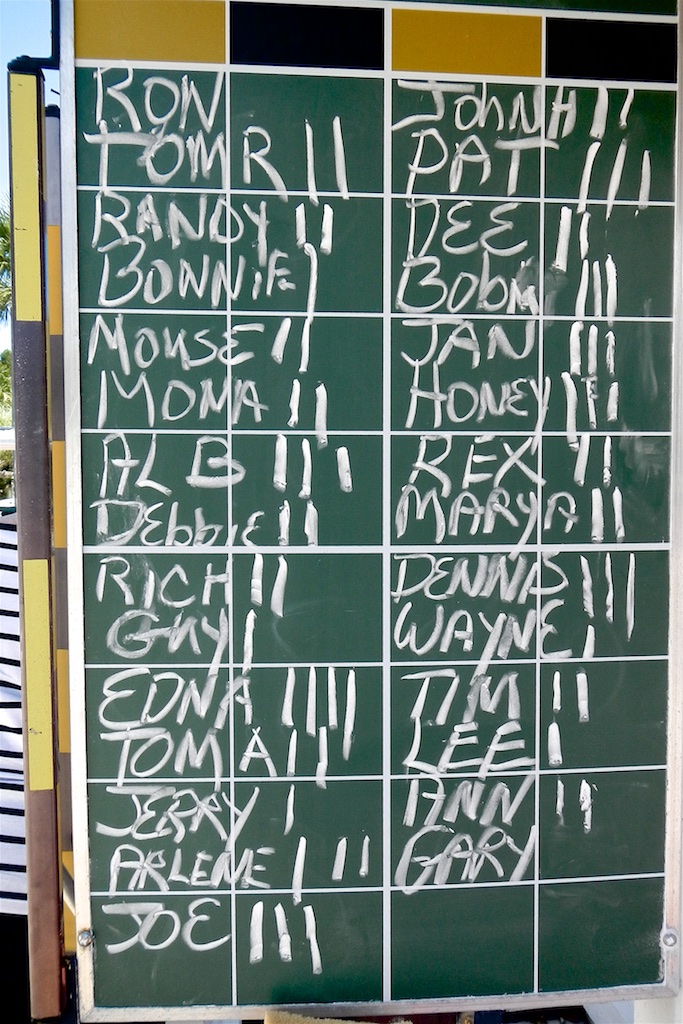 RON
TOM R ||
RANDY ||
BONNIE |
MOUSE ||
MONA ||
AL B |||
Debbie ||
RICH ||
GUY |
EDNA ||||
TOM A ||
JERRY |
ARLENE |||
JOE |||
JOHN H ||
PAT |||
DEE ||
Bob M |||
JAN |||
HONEY |||
REX ||
MARY A ||
DENNIS |||
WAYNE |
TIM ||
LEE |
ANN ||
GARY